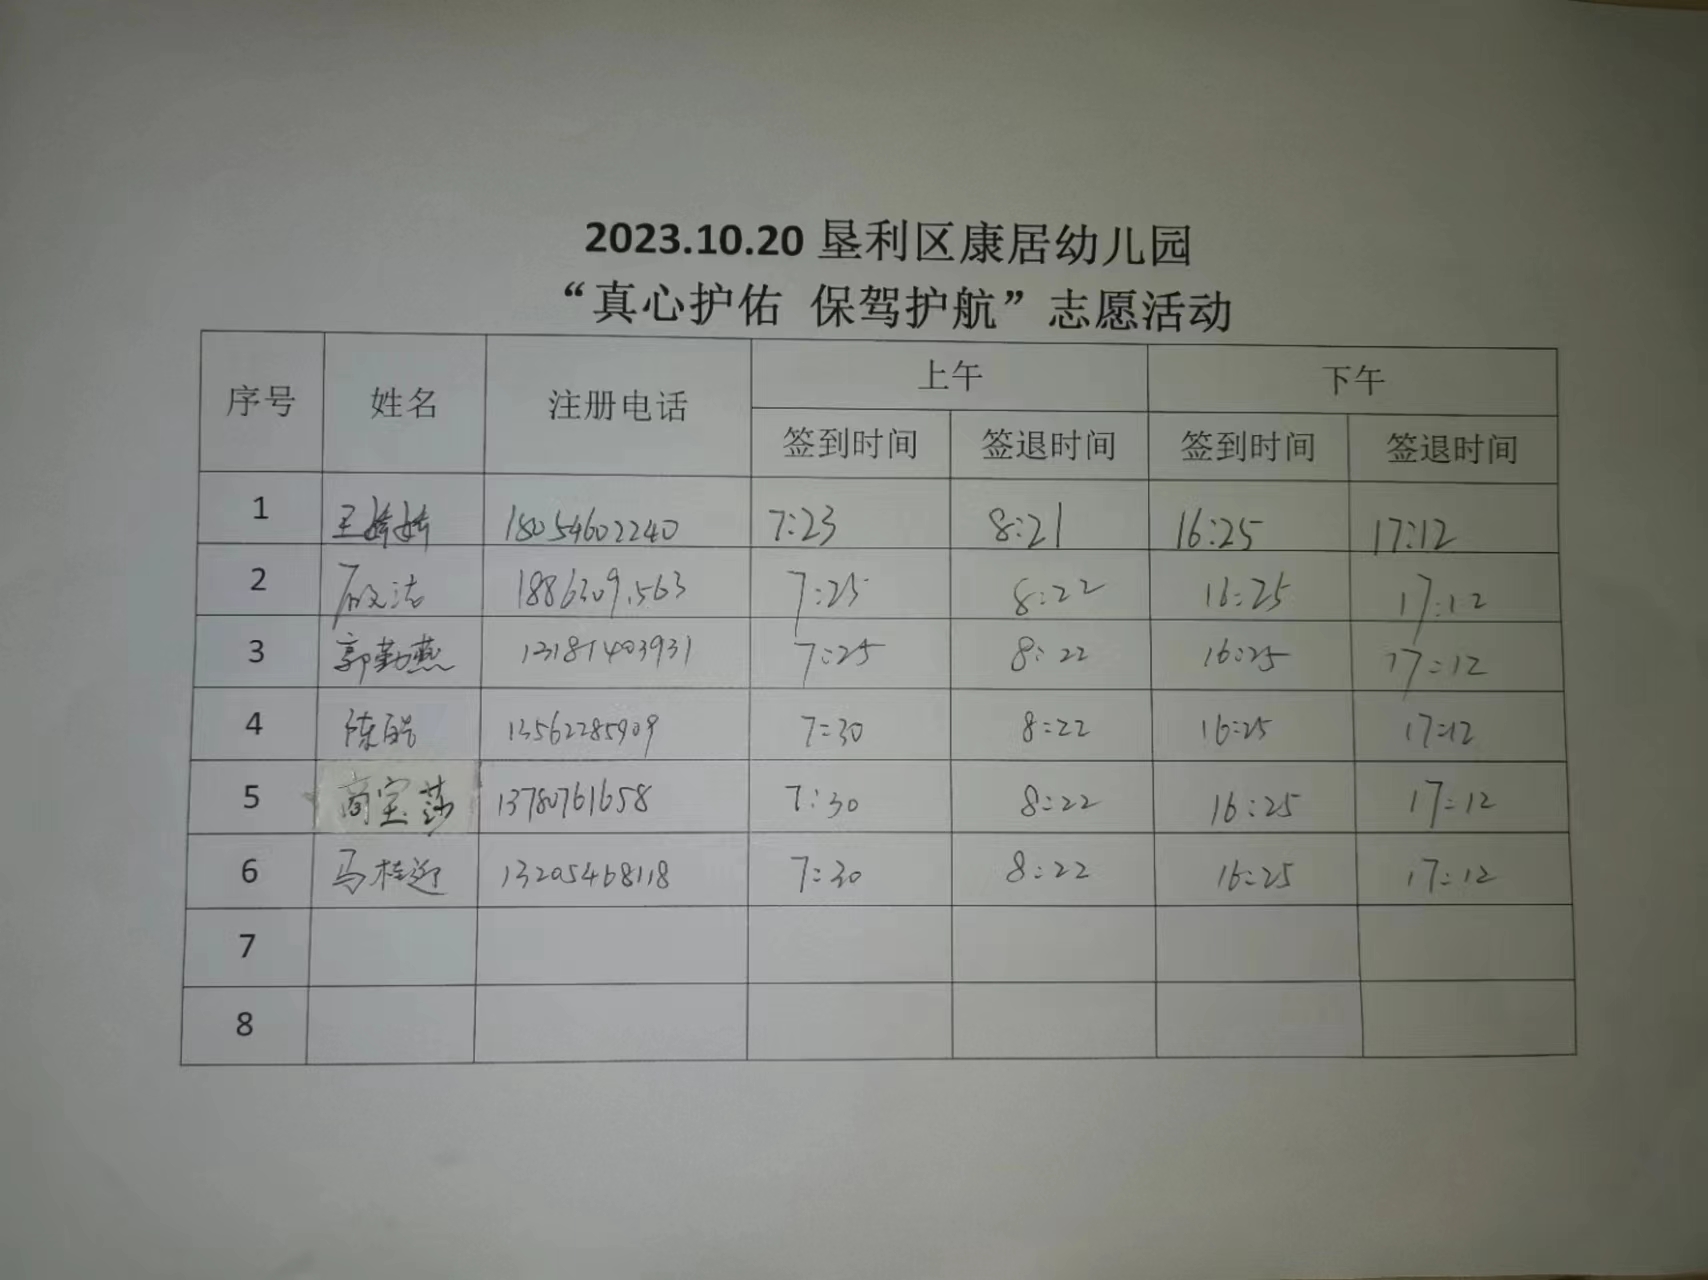 2023.10.20 垦利区康居幼儿园
“真心护佑 保驾护航”志愿活动
序号 姓名 注册电话 上午 下午
签到时间 签退时间 签到时间 签退时间
1 王婷婷 18054602240 7:23 8:21 16:25 17:12
2 7:25 8:22 16:25 17:12
3 郭勤燕 13181403931 7:25 8:22 16:25 17:12
4 陈皓 13562285909 7:30 8:22 16:25 17:12
5 商宝莎 13780761658 7:30 8:22 16:25 17:12
6 马桂迎 13205468118 7:30 8:22 16:25 17:12
7
8